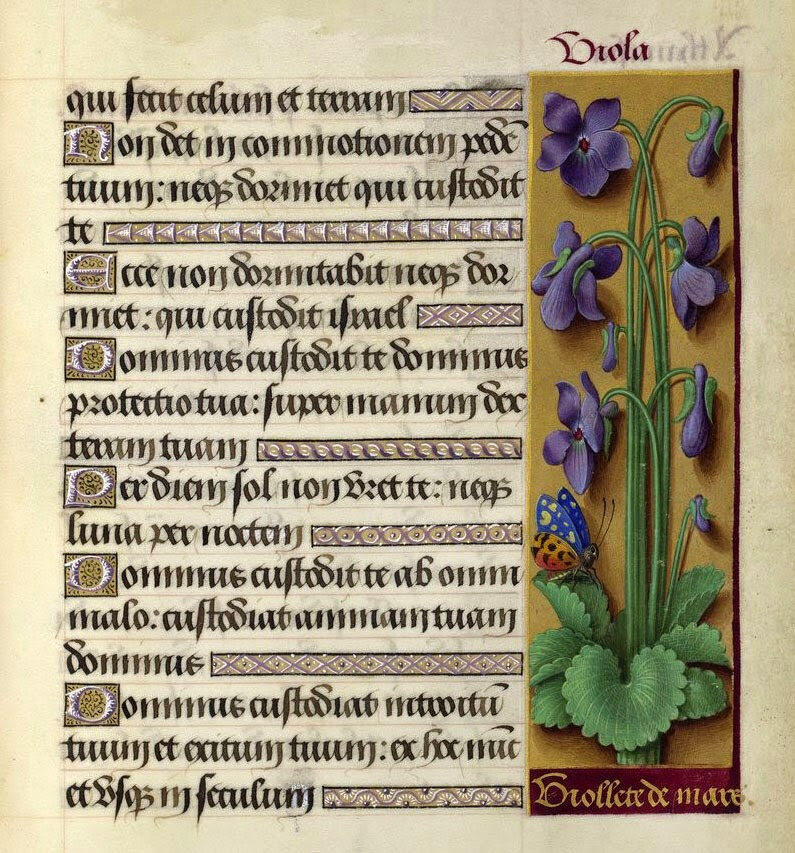 Viola
qui fecit celum et terram
Non det in commotionem pedē
tuum: neqꝫ dormiet qui custodit
te
Ecce non dormitabit neqꝫ dor
miet: qui custodit israel
Dominus custodit te dominus
protectio tua: super manum dex
teram tuam
Per diem sol non vret te: neqꝫ
luna per noctem
Dominus custodit te ab omni
malo: custodiat animam tuam
dominus
Dominus custodiat introitū
tuum et exitum tuum: ex hoc nūc
et vsqꝫ in seculum
Viollete de mars.